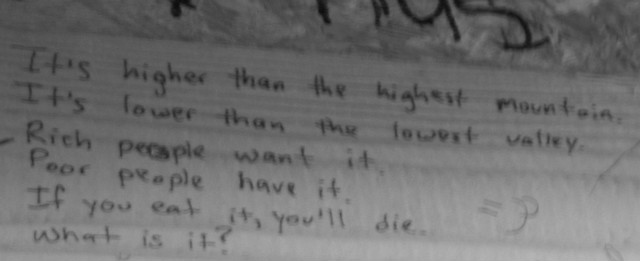 It's higher than the highest mountain.
It's lower than the lowest valley.
Rich people want it.
Poor people have it.
If you eat it, you'll die.
What is it?
=P